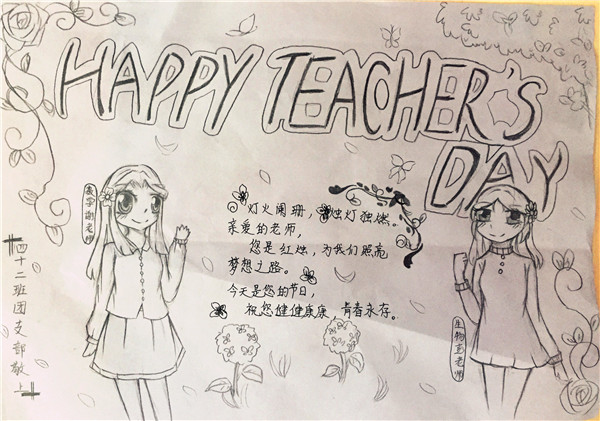 HAPPY TEACHER'S
DAY
数学谢老师
灯火阑珊，烛灯独燃。
亲爱的老师，
您是红烛，为我们照亮
梦想之路。
今天是您的节日，
祝您健健康康，青春永存。
四十二班团支部敬上
生物老师